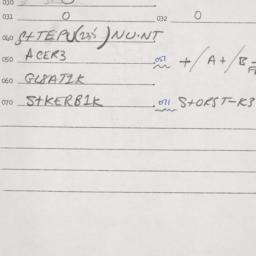 030
031 0 032 0
040 S+TEPU(235')NU·NT
050 ACER3 051 +/A+/B-
060 GL8AT1K
070 S+KERB1K 071 S+ORST-K3